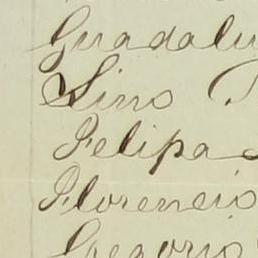 Guadalu
Lino
Felipa
Florencio
Gregorio